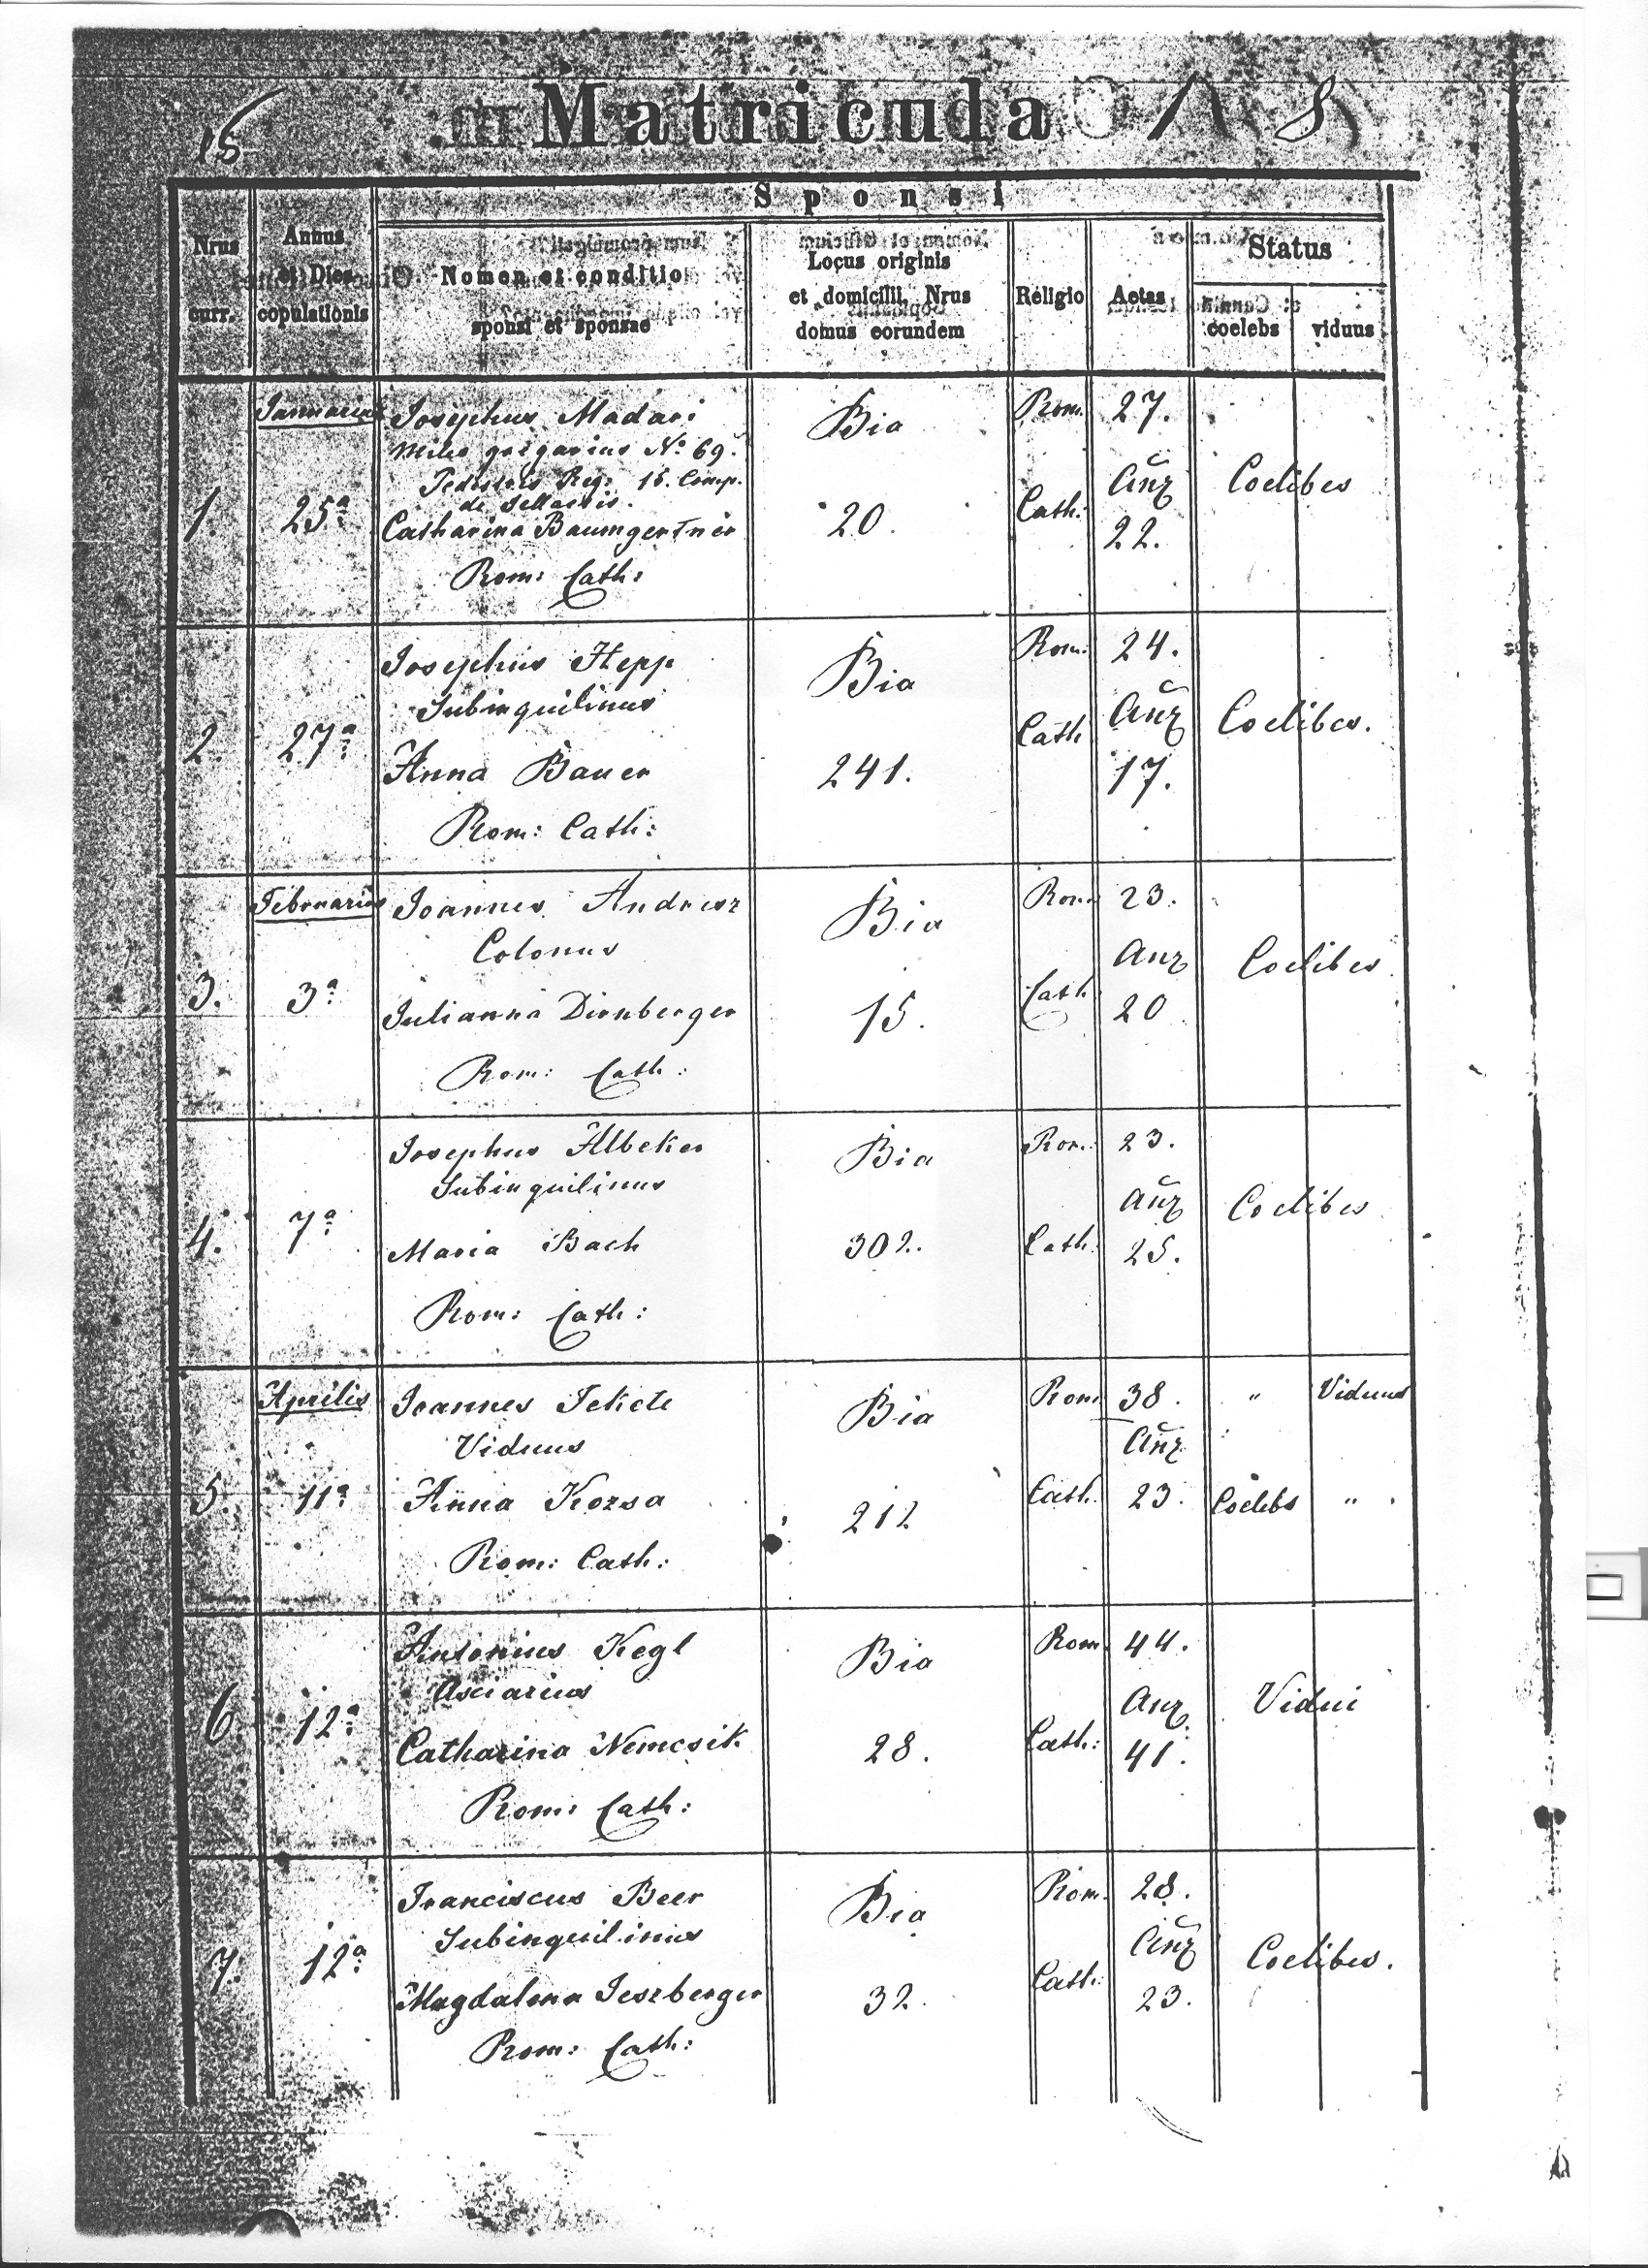 15
Matricula
Sponsi
Nrus
curr.
Annus
et Dies
copulationis
Nomen et conditio
sponsi et sponsae
Locus originis
et domicilii, Nrus
domus eorundem
Religio
Aetas
Status
coelebs
viduus
Januarius
1.
25ª
Josephus Madari
Miles gregarius Nº 69.
Reg: 15. Comp.
Catharina Baumgertner
Rom: Cath:
Bia
20.
Rom.
Cath:
27.
Anz
22.
Coelibes
2.
27ª
Josephus Hepp
Subinquilinus
Anna Bauer
Rom: Cath:
Bia
241.
Rom:
Cath
24.
Anz
17.
Coelibes.
Februarius
3.
3ª
Joannes Andresz
Colonus
Julianna Dirnberger
Rom: Cath:
Bia
15.
Rom
Cath
23.
Anz
20
Coelibes
4.
7ª
Josephus Albeker
Subinquilinus
Maria Bach
Rom: Cath:
Bia
302.
Rom:
Cath:
23.
Anz
25.
Coelibes
Aprilis
5.
11ª
Joannes Fekete
Viduus
Anna Kozsa
Rom: Cath:
Bia
212
Rom
Cath.
38.
Anz
23.
" Viduus
Coelebs "
6
12ª
Antonius Kegl
Asciarius
Catharina Nemcsik
Rom: Cath:
Bia
28.
Rom
Cath:
44.
Anz
41.
Vidui
7.
12ª
Franciscus Beer
Subinquilinus
Magdalena Jeszberger
Rom: Cath:
Bia
32.
Rom.
Cath:
28.
Anz
23.
Coelibes.